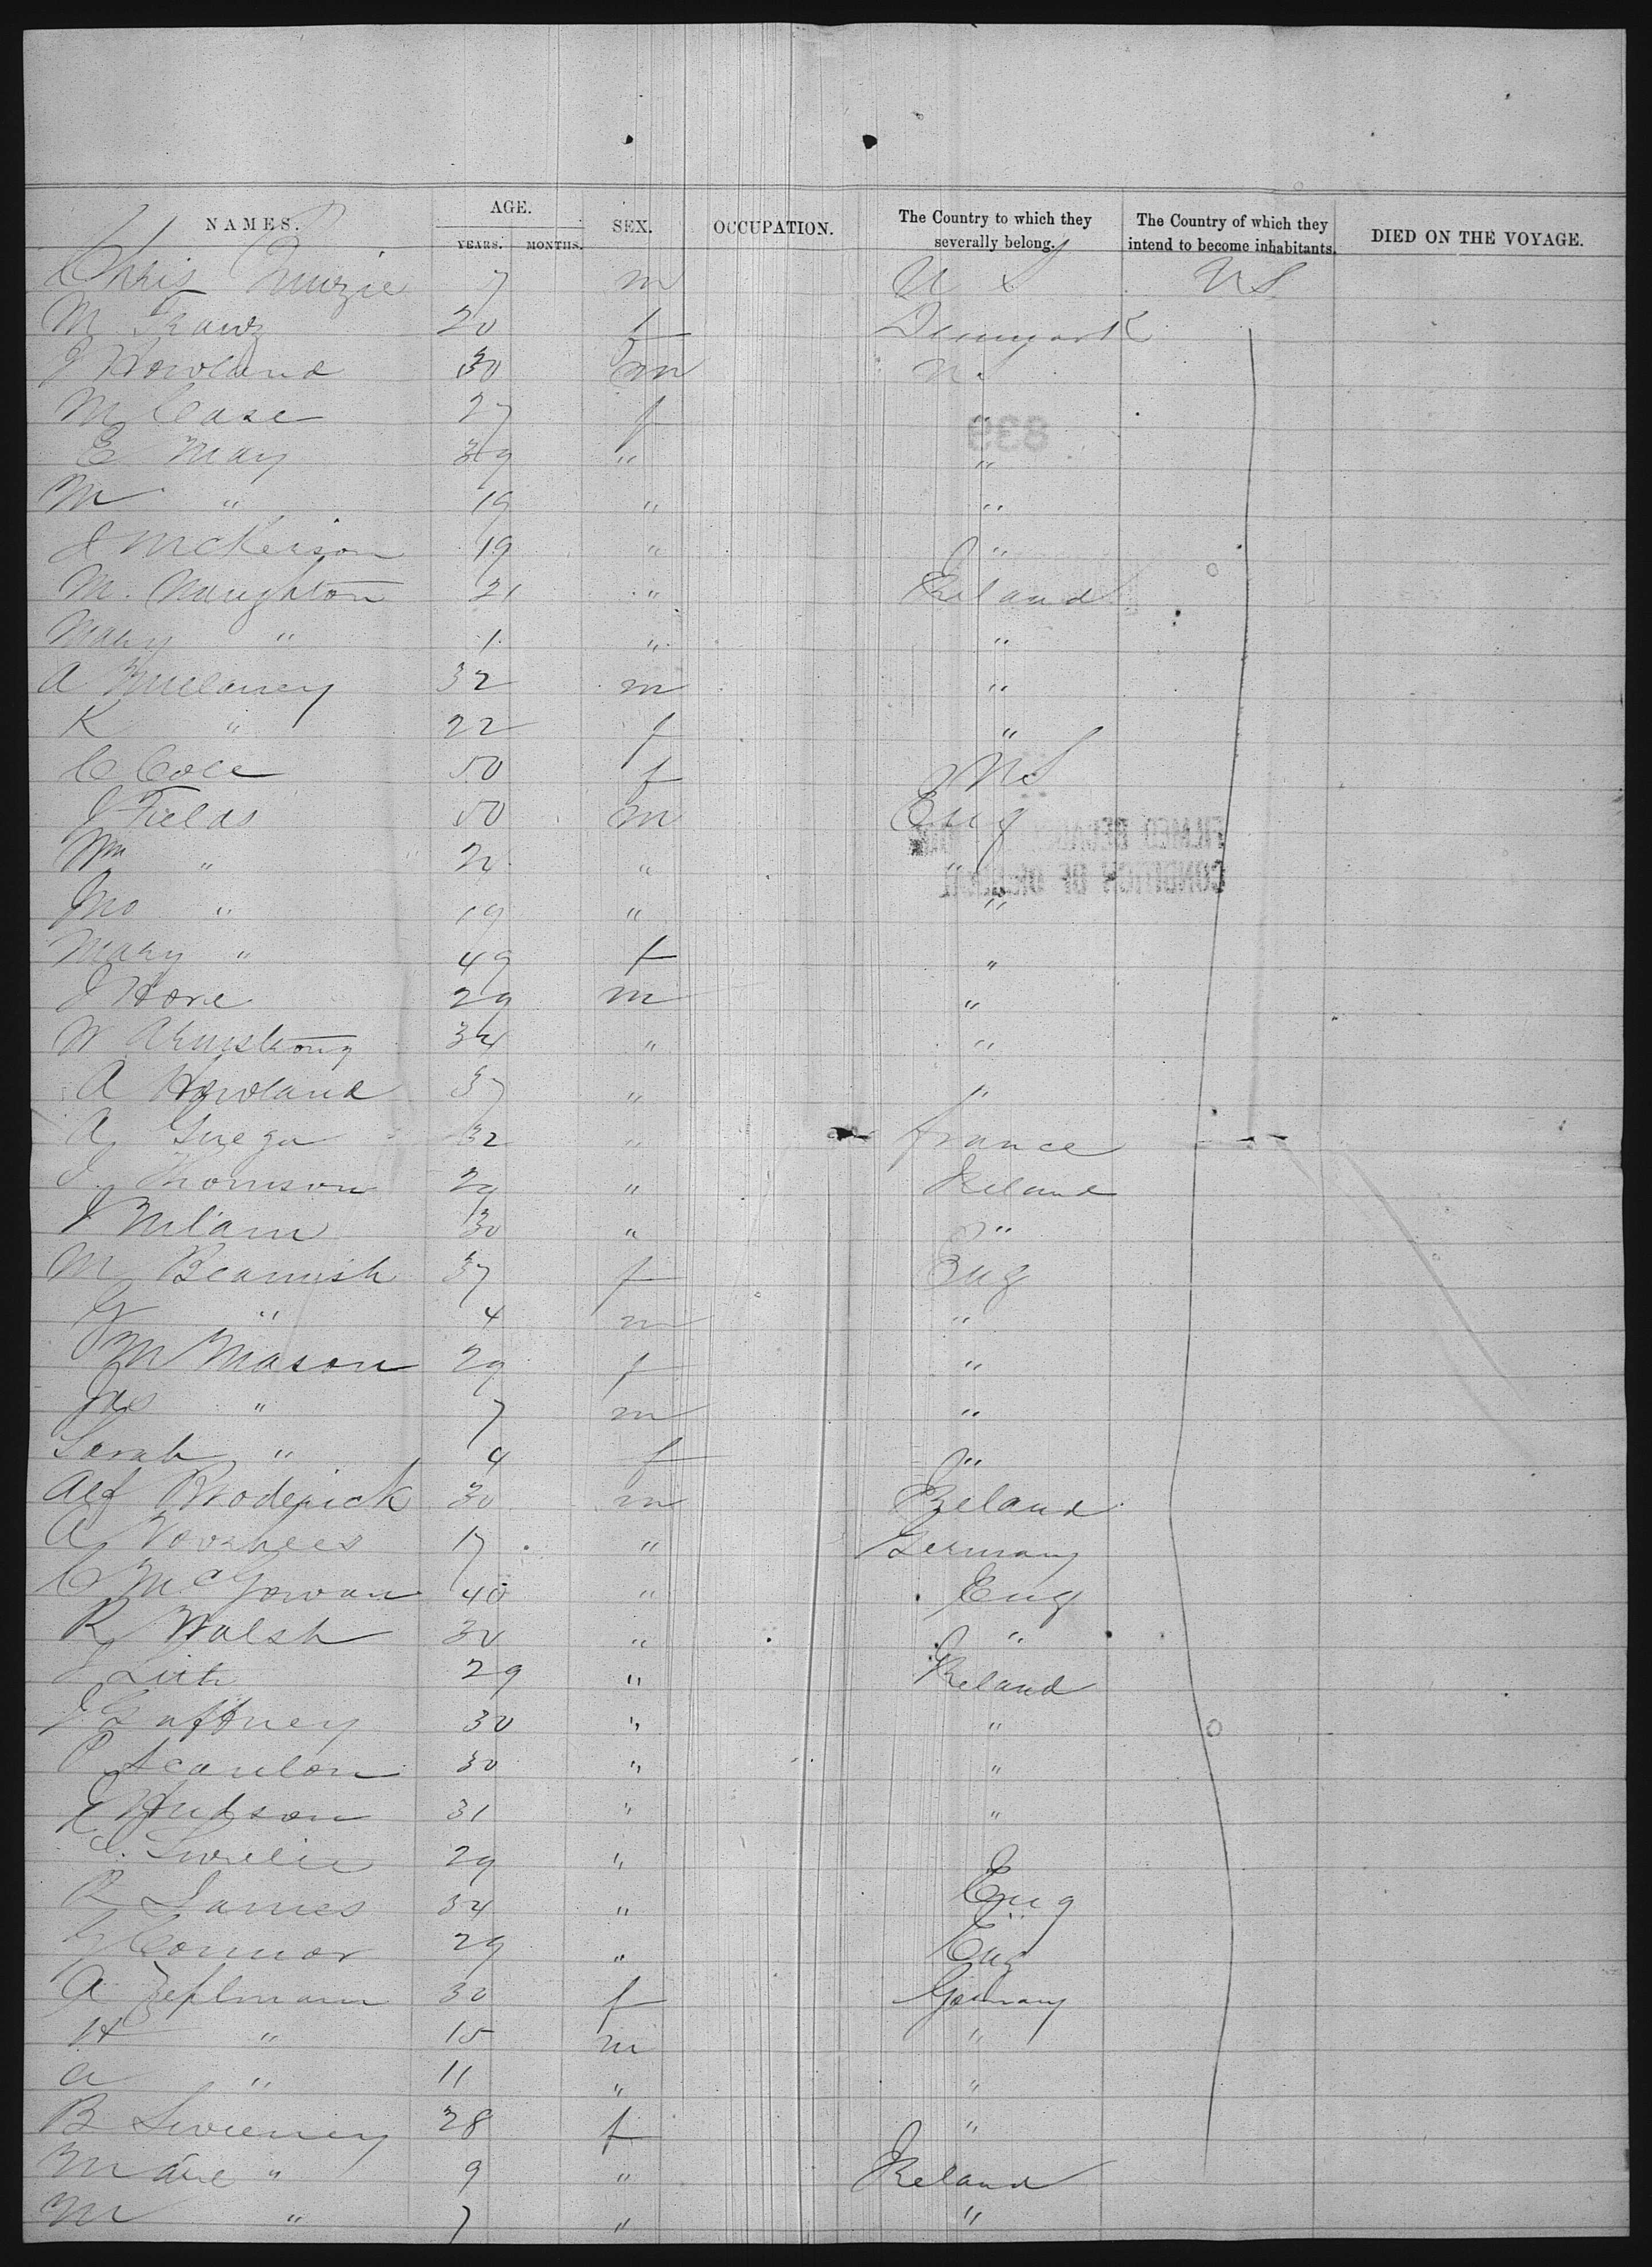 NAMES. AGE. YEARS. MONTHS. SEX. OCCUPATION. The Country to which they severally belong. The Country of which they intend to become inhabitants. DIED ON THE VOYAGE.
Chris 7 m U S U S
M Franz 20 f Denmark
J Howland 30 m U S
M Case 27 f "
E May 39 " "
M " 19 " "
J McKeison 19 " "
M. Naughton 21 " Ireland
Mary " 1 " "
A Mullaney 32 m "
K " 22 f "
C Cole 50 f U S
J Fields 50 m Eng
Wm " 21 " "
Jno " 19 " "
Mary " 49 f "
J Hore 29 m "
W Armstrong 34 " "
A Howland 37 " "
A 32 " France
J. Thomson 29 " Ireland
J Milam 30 " "
M Beamish 37 f Eng
G " 4 m "
M Mason 29 f "
Jas " 7 m "
Sarah " 4 f "
Alf Broderick 30 m Ireland
A Voorhees 17 " Germany
C McGowan 40 " Eng
R Walsh 30 " "
J 29 " Ireland
J Gaffney 30 " "
P Scanlon 30 " "
E Hudson 31 " "
29 "
R James 34 " Eng
G Connor 29 " Eng
A 30 f Germany
H " 15 m "
A " 11 " "
B Sweeney 28 f "
" 9 " Ireland
M " 7 " "
839
FILMED BECAUSE
CONDITION OF ORIGINAL